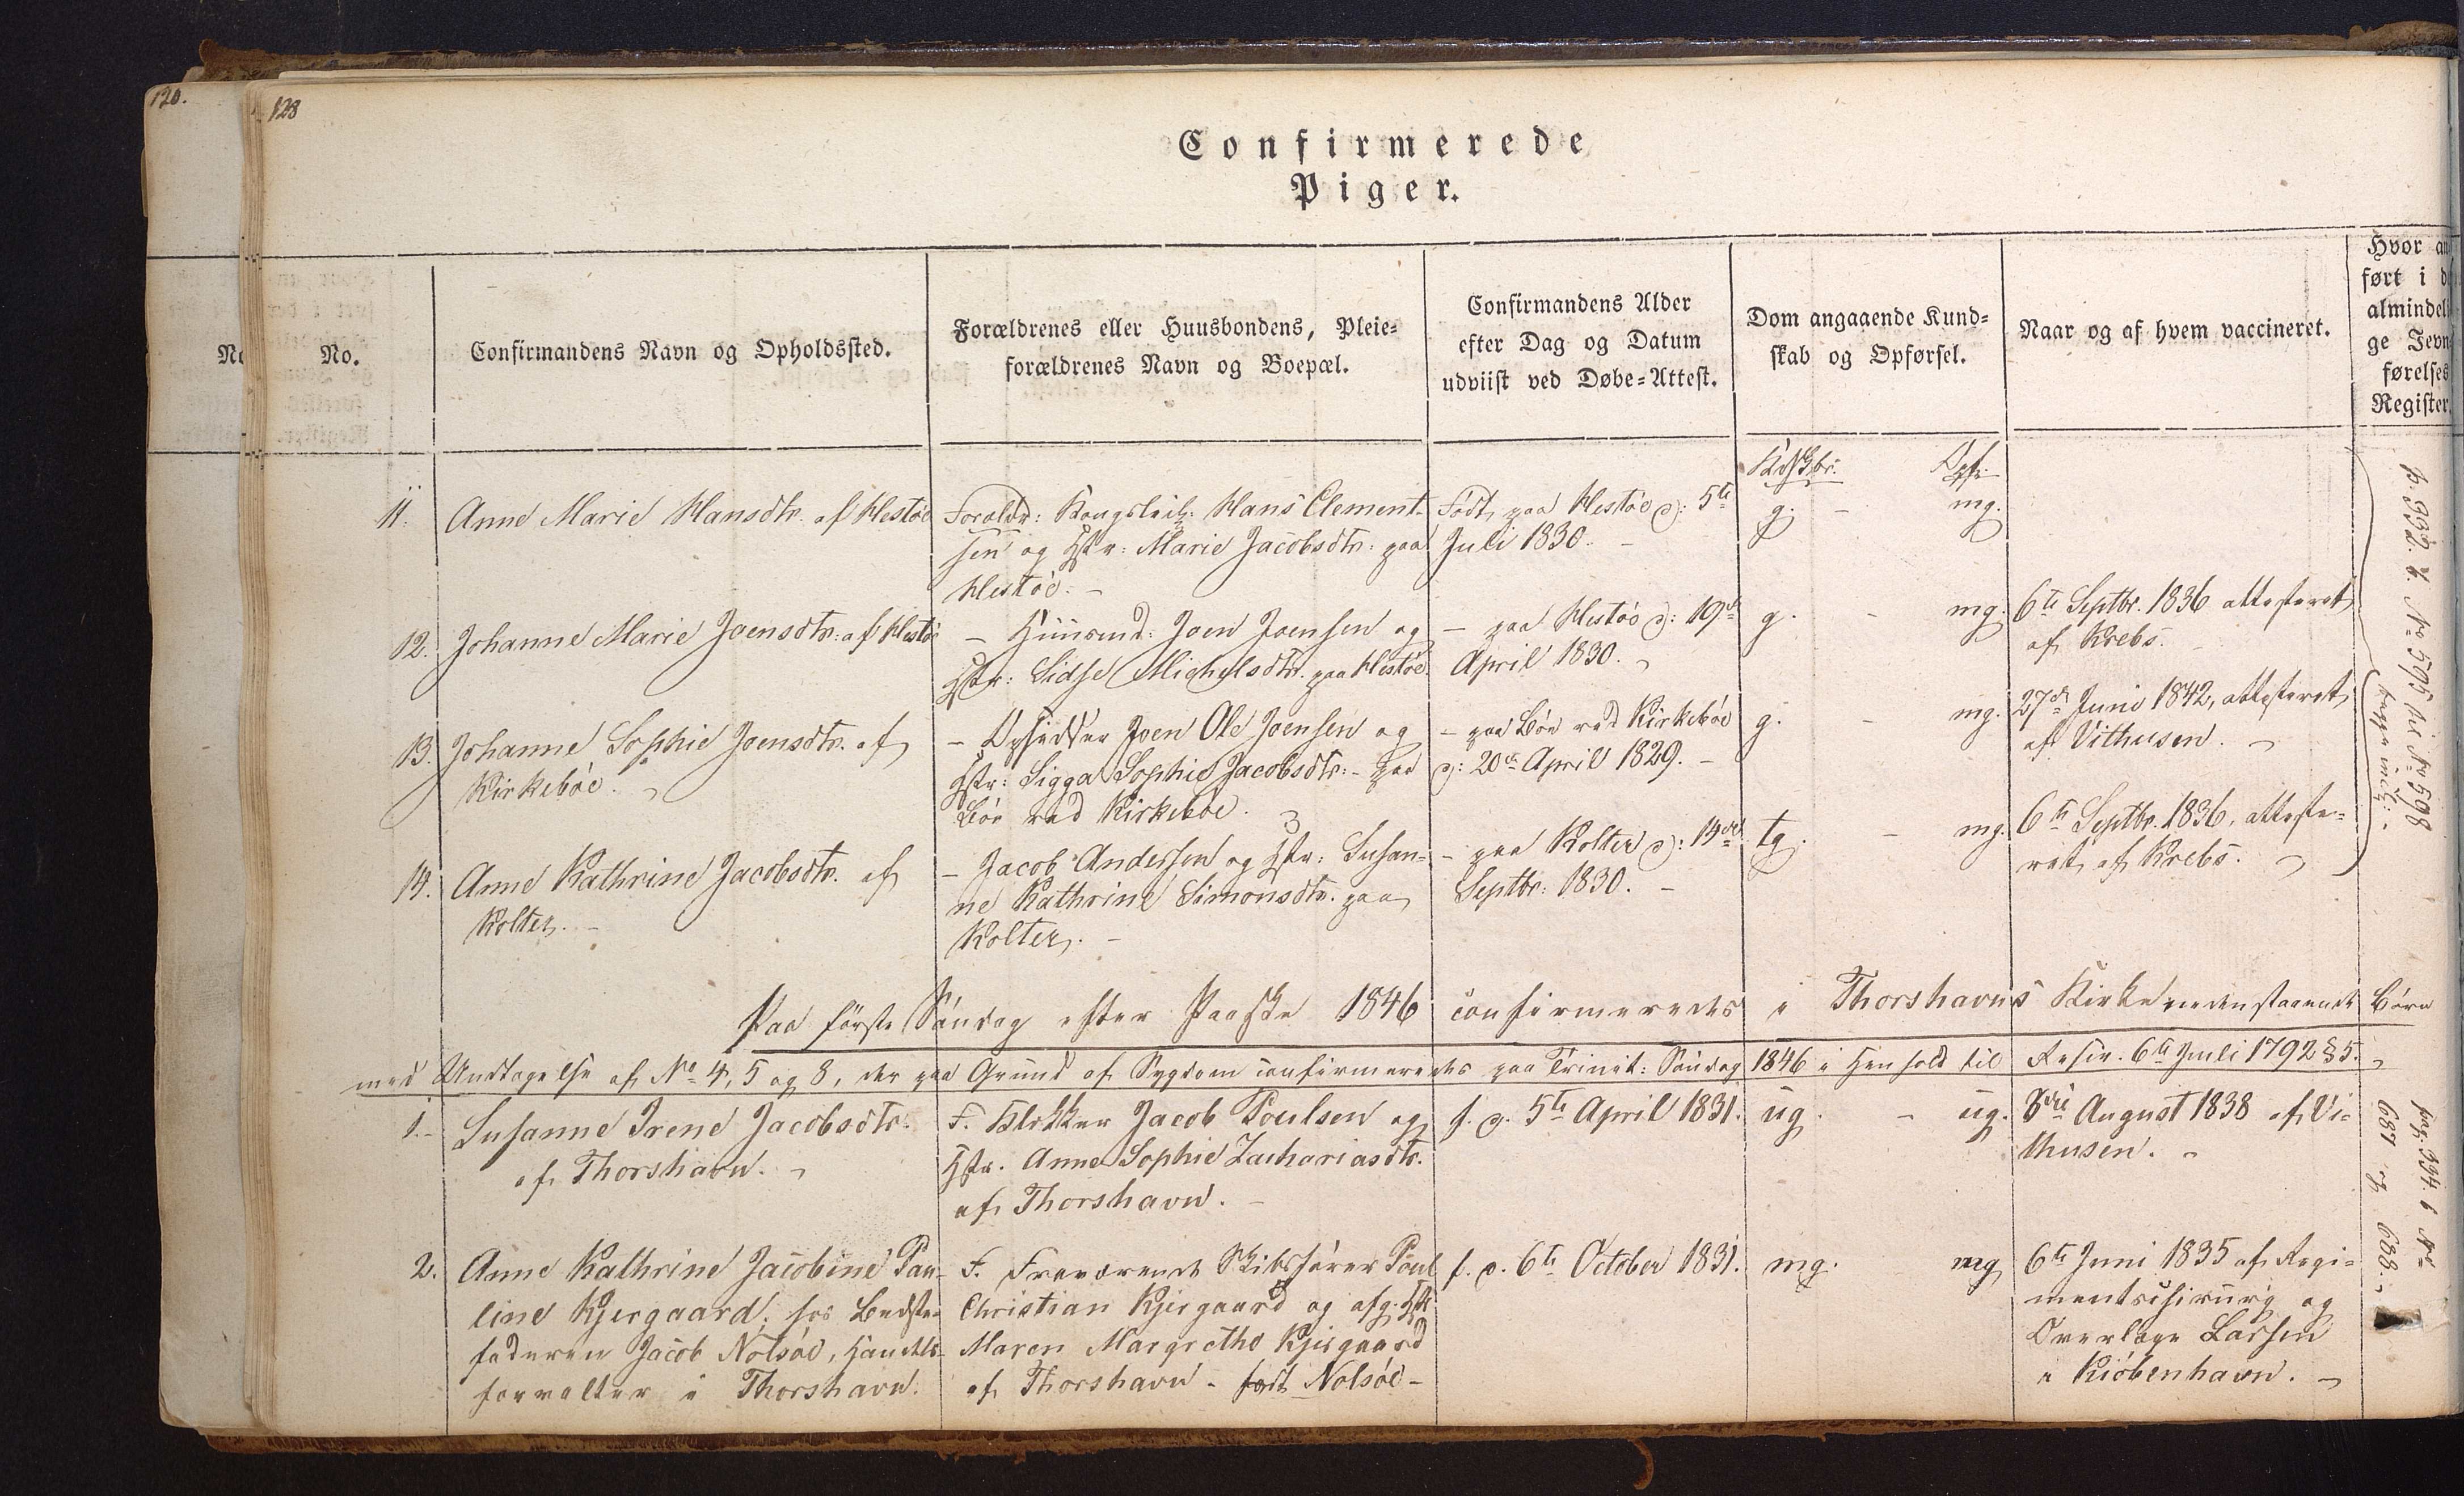 120.
128
Confirmerede
Piger.
No.
Confirmandens Navn og Opholdssted.
Forældrenes eller Huusbondens, Pleie-
forældrenes Navn og Boepæl.
Confirmandens Alder
efter Dag og Datum
udviist ved Døbe-Attest.
Dom angaaende Kund-
skab og Opførsel.
Naar og af hvem vaccineret.
Hvor an
ført i d
almindeli
ge Jevn-
førelses
Register.
Kdskbr. Opf.
11.
Anne Marie Hansdtr. af Hestöe
Foraldr: Kongsleil: Hans Clement-
sen og Hstr: Marie Jacobsdtr: paa
Hestöe. -
Födt paa Hestöe d: 5te
Juli 1830. -
g. - mg.
12.
Johanne Marie Joensdtr: af Hestöe
- Huusmd: Joen Joensen og
Hstr: Sidse Michelsdtr. paa Hestöe.
- paa Hestöe d: 19de
April 1830.
g. - mg.
6te Septbr. 1836 attesteret
af Krebs.
13.
Johanne Sophie Joensdtr. af
Kirkeböe.
- Opsidder Joen Ole Joensen og
Hstr: Sigga Sophie Jacobsdtr: - paa
Böe ved Kirkeböe.
- paa Böe ved Kirkeböe
d: 20de April 1829. -
g. - mg.
27de Juni 1842, attesteret
af Vithusen.
14.
Anne Kathrine Jacobsdtr. af
Kolter. -
- Jacob Andersen og Hstr: Susan-
ne Kathrine Simonsdtr. paa
Kolter. -
- paa Kolter d: 14de
Septbr: 1830. -
tg. - mg.
6te Septbr. 1836, atteste-
ret af Krebs.
p. 332. No 595 til No 598
begge incl:
Paa förste Söndag efter Paaske 1846 confirmeredes i Thorshavns Kirke nedenstaaende Börn
med Undtagelse af No 4, 5 og 8, der paa Grund af Sygdom confirmeredes paa Trinit: Söndag 1846 i Henhold til Rescr. 6te Juli 1792 § 5.
1.
Susanne Irene Jacobsdtr.
af Thorshavn.
F. Klokker Jacob Poulsen og
Hstr. Anne Sophie Zachariasdtr.
af Thorshavn. -
f. d. 5te April 1831.
ug. - ug.
8de August 1838 af Vi-
thusen.
2.
Anne Kathrine Jacobine Pau-
line Kjergaard, hos Bedste-
faderen Jacob Nolsöe, Handels-
forvalter i Thorshavn.
F. Fraværende Skibsförer Poul
Christian Kjergaard og afg. Hstr
Maren Margrethe Kjergaard
af Thorshavn - födt Nolsöe -
f. d. 6te October 1831.
mg. mg
6te Juni 1835 af Regi-
mentschirurg og
Overlæge Larsen
i Kiöbenhavn.
pag. 334. No
687 og 688.